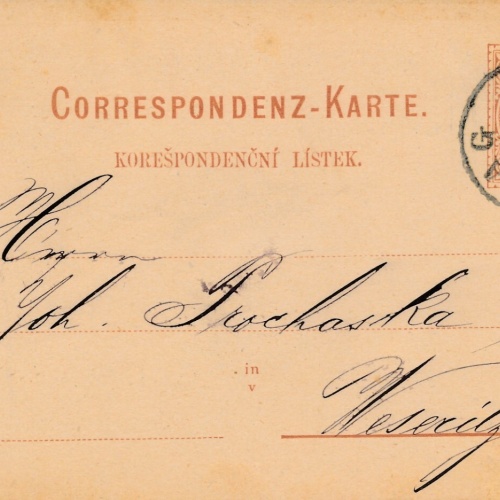 CORRESPONDENZ-KARTE.
KOREŠPONDENČNÍ LÍSTEK.
G
Herrn
Joh. Prochaska
in
v
Weseritz